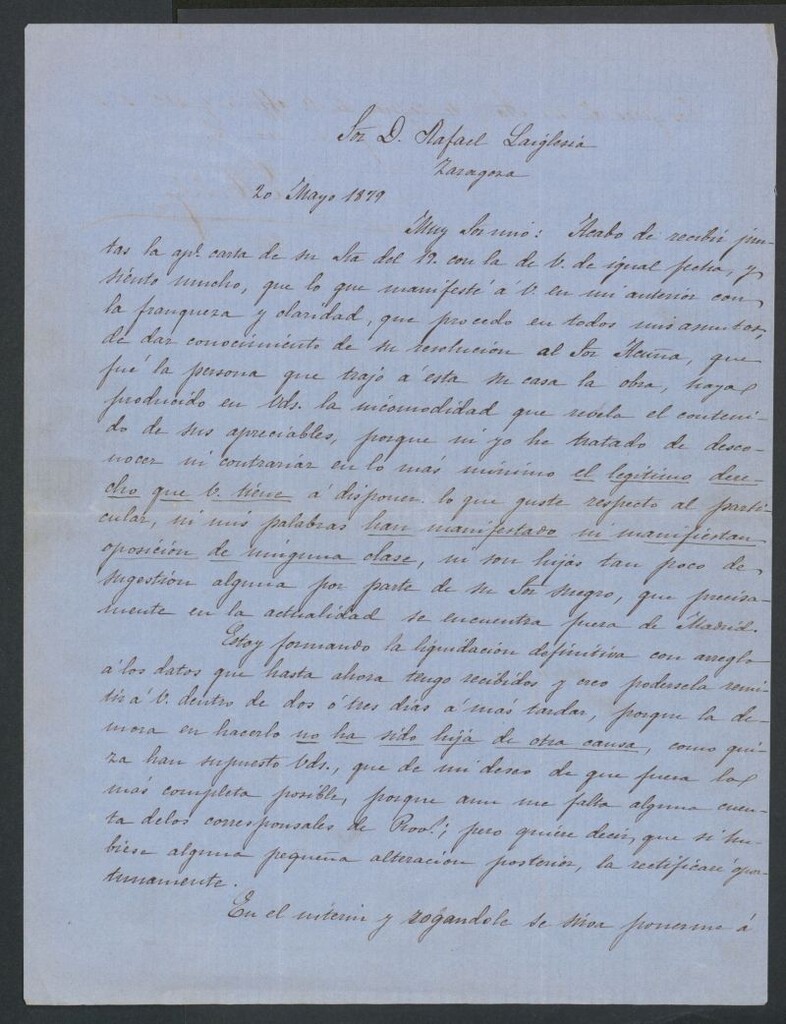 Sor D. Rafael Laiglesia
Zaragoza
20 Mayo 1879
Muy Sor mio: Acabo de recibir jun-
tas la apl. carta de su Sra del 19. con la de V. de igual fecha, y
siento mucho, que lo que manifesté á V. en mi anterior con
la franqueza y claridad, que procedo en todos mis asuntos,
de dar conocimiento de su resolución al Sor Acuña, que
fué la persona que trajo á esta su casa la obra, haya
producido en Vds. la incomodidad que revela el conteni-
do de sus apreciables, porque ni yo he tratado de desco-
nocer ni contrariar en lo más mínimo el legítimo dere-
cho que V. tiene á disponer lo que guste respecto al parti-
cular, ni mis palabras han manifestado ni manifiestan
oposición de ninguna clase, ni son hijas tan poco de
sugestión alguna por parte de su Sor suegro, que precisa-
mente en la actualidad se encuentra fuera de Madrid.
Estoy formando la liquidación definitiva con arreglo
á los datos que hasta ahora tengo recibidos y creo podersela remi-
tir á V. dentro de dos ó tres días á más tardar, porque la de-
mora en hacerlo no ha sido hija de otra causa, como qui-
za han supuesto Vds., que de mi deseo de que fuera lo
más completa posible, porque aun me falta alguna cuen-
ta delos corresponsales de Prov.; pero quiere decir que si hu-
biese alguna pequeña alteración posterior, la rectificaré opor-
tunamente.
En el interin y rogándole se sirva ponerme á